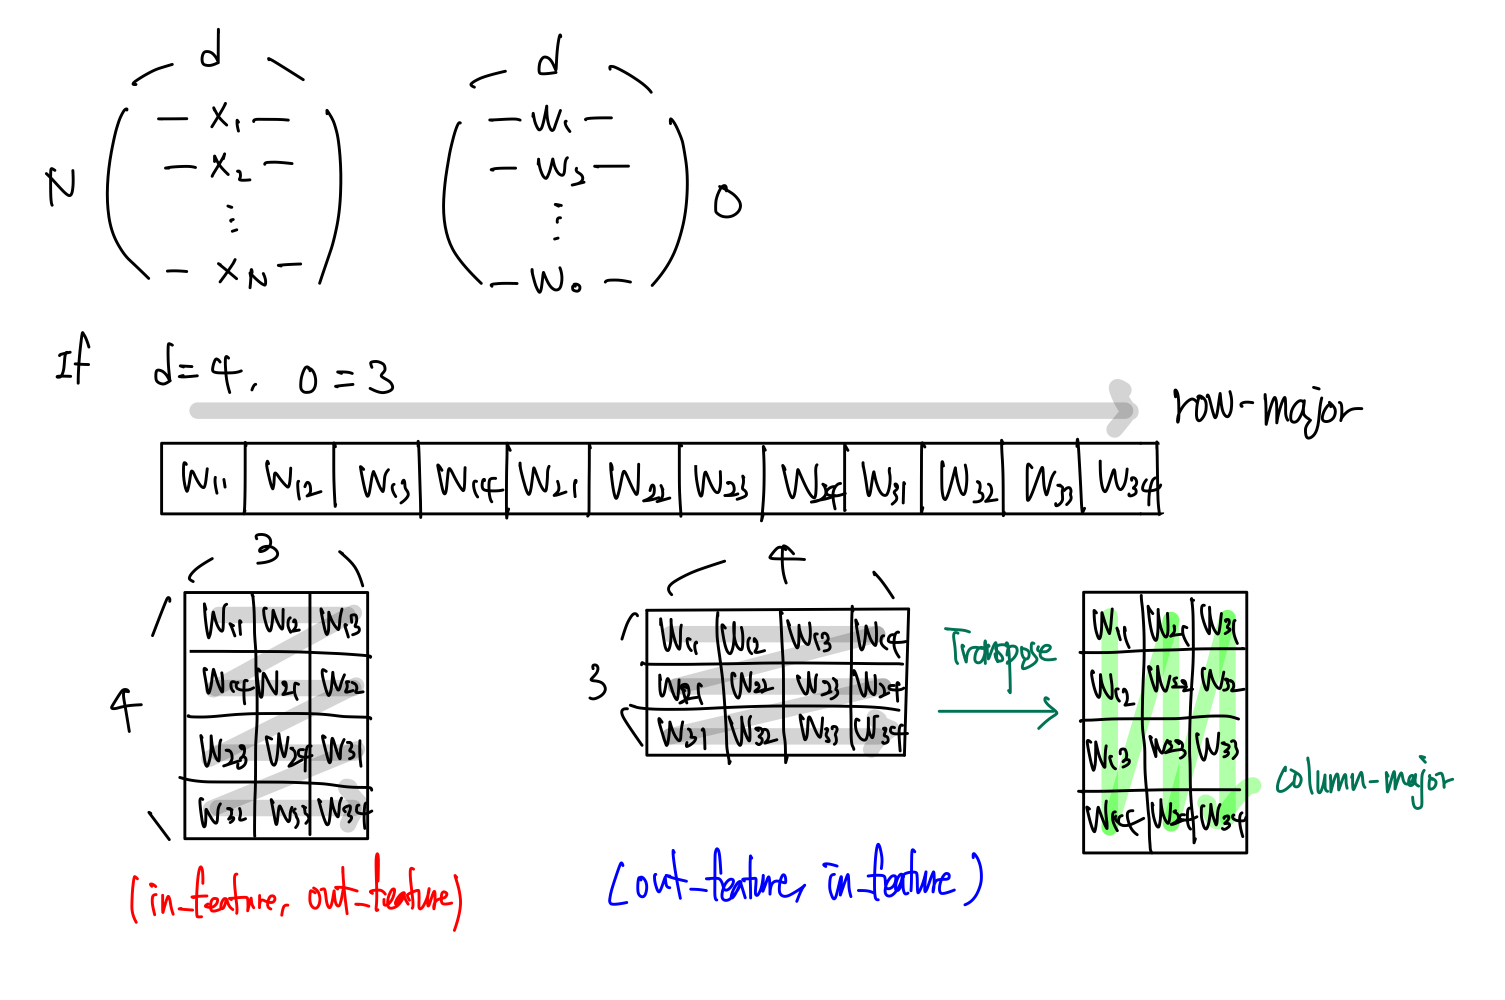 d d
N — x₁ — — w₁ — O
— x₂ — — w₂ —
⋮ ⋮
— x_N — — w₀ —
If d=4, o=3
row-major
W₁₁ W₁₂ W₁₃ W₁₄ W₂₁ W₂₂ W₂₃ W₂₄ W₃₁ W₃₂ W₃₃ W₃₄
3
4
W₁₁ W₁₂ W₁₃
W₁₄ W₂₁ W₂₂
W₂₃ W₂₄ W₃₁
W₃₂ W₃₃ W₃₄
(in_feature, out_feature)
4
3
W₁₁ W₁₂ W₁₃ W₁₄
W₂₁ W₂₂ W₂₃ W₂₄
W₃₁ W₃₂ W₃₃ W₃₄
(out_feature, in_feature)
Transpose
W₁₁ W₂₁ W₃₁
W₁₂ W₂₂ W₃₂
W₁₃ W₂₃ W₃₃
W₁₄ W₂₄ W₃₄
column-major